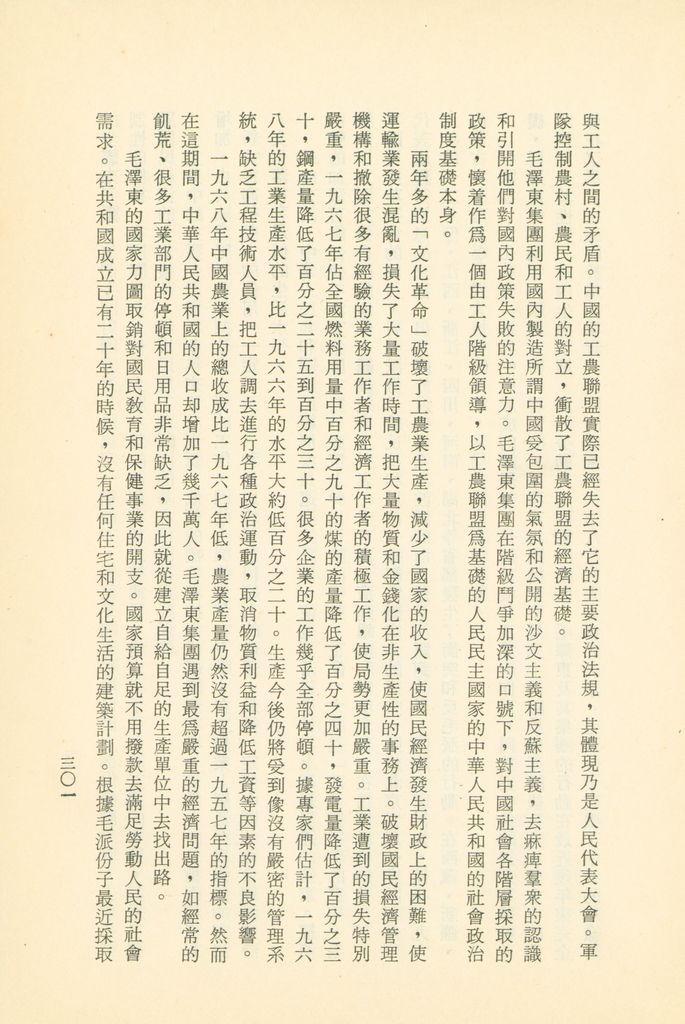 與工人之間的矛盾。中國的工農聯盟實際已經失去了它的主要政治法規，其體現乃是人民代表大會。軍
隊控制農村、農民和工人的對立，衝散了工農聯盟的經濟基礎。
毛澤東集團利用國內製造所謂中國受包圍的氣氛和公開的沙文主義和反蘇主義，去麻痺羣衆的認識
和引開他們對國內政策失敗的注意力。毛澤東集團在階級鬥爭加深的口號下，對中國社會各階層採取的
政策，懷着作爲一個由工人階級領導，以工農聯盟爲基礎的人民民主國家的中華人民共和國的社會政治
制度基礎本身。
兩年多的「文化革命」破壞了工農業生產，減少了國家的收入，使國民經濟發生財政上的困難，使
運輸業發生混亂，損失了大量工作時間，把大量物質和金錢化在非生產性的事務上。破壞國民經濟管理
機構和撤除很多有經驗的業務工作者和經濟工作者的積極工作，使局勢更加嚴重。工業遭到的損失特別
嚴重，一九六七年佔全國燃料用量中百分之九十的煤的產量降低了百分之四十，發電量降低了百分之三
十，鋼產量降低了百分之二十五到百分之三十。很多企業的工作幾乎全部停頓。據專家們估計，一九六
八年的工業生產水平，比一九六六年的水平大約低百分之二十。生產今後仍將受到像沒有嚴密的管理系
統，缺乏工程技術人員，把工人調去進行各種政治運動，取消物質利益和降低工資等因素的不良影響。
一九六八年中國農業上的總收成比一九六七年低，農業產量仍然沒有超過一九五七年的指標。然而
在這期間，中華人民共和國的人口却增加了幾千萬人。毛澤東集團遇到最爲嚴重的經濟問題，如經常的
飢荒、很多工業部門的停頓和日用品非常缺乏，因此就從建立自給自足的生產單位中去找出路。
毛澤東的國家力圖取銷對國民教育和保健事業的開支。國家預算就不用撥款去滿足勞動人民的社會
需求。在共和國成立已有二十年的時候，沒有任何住宅和文化生活的建築計劃。根據毛派份子最近採取
三〇一